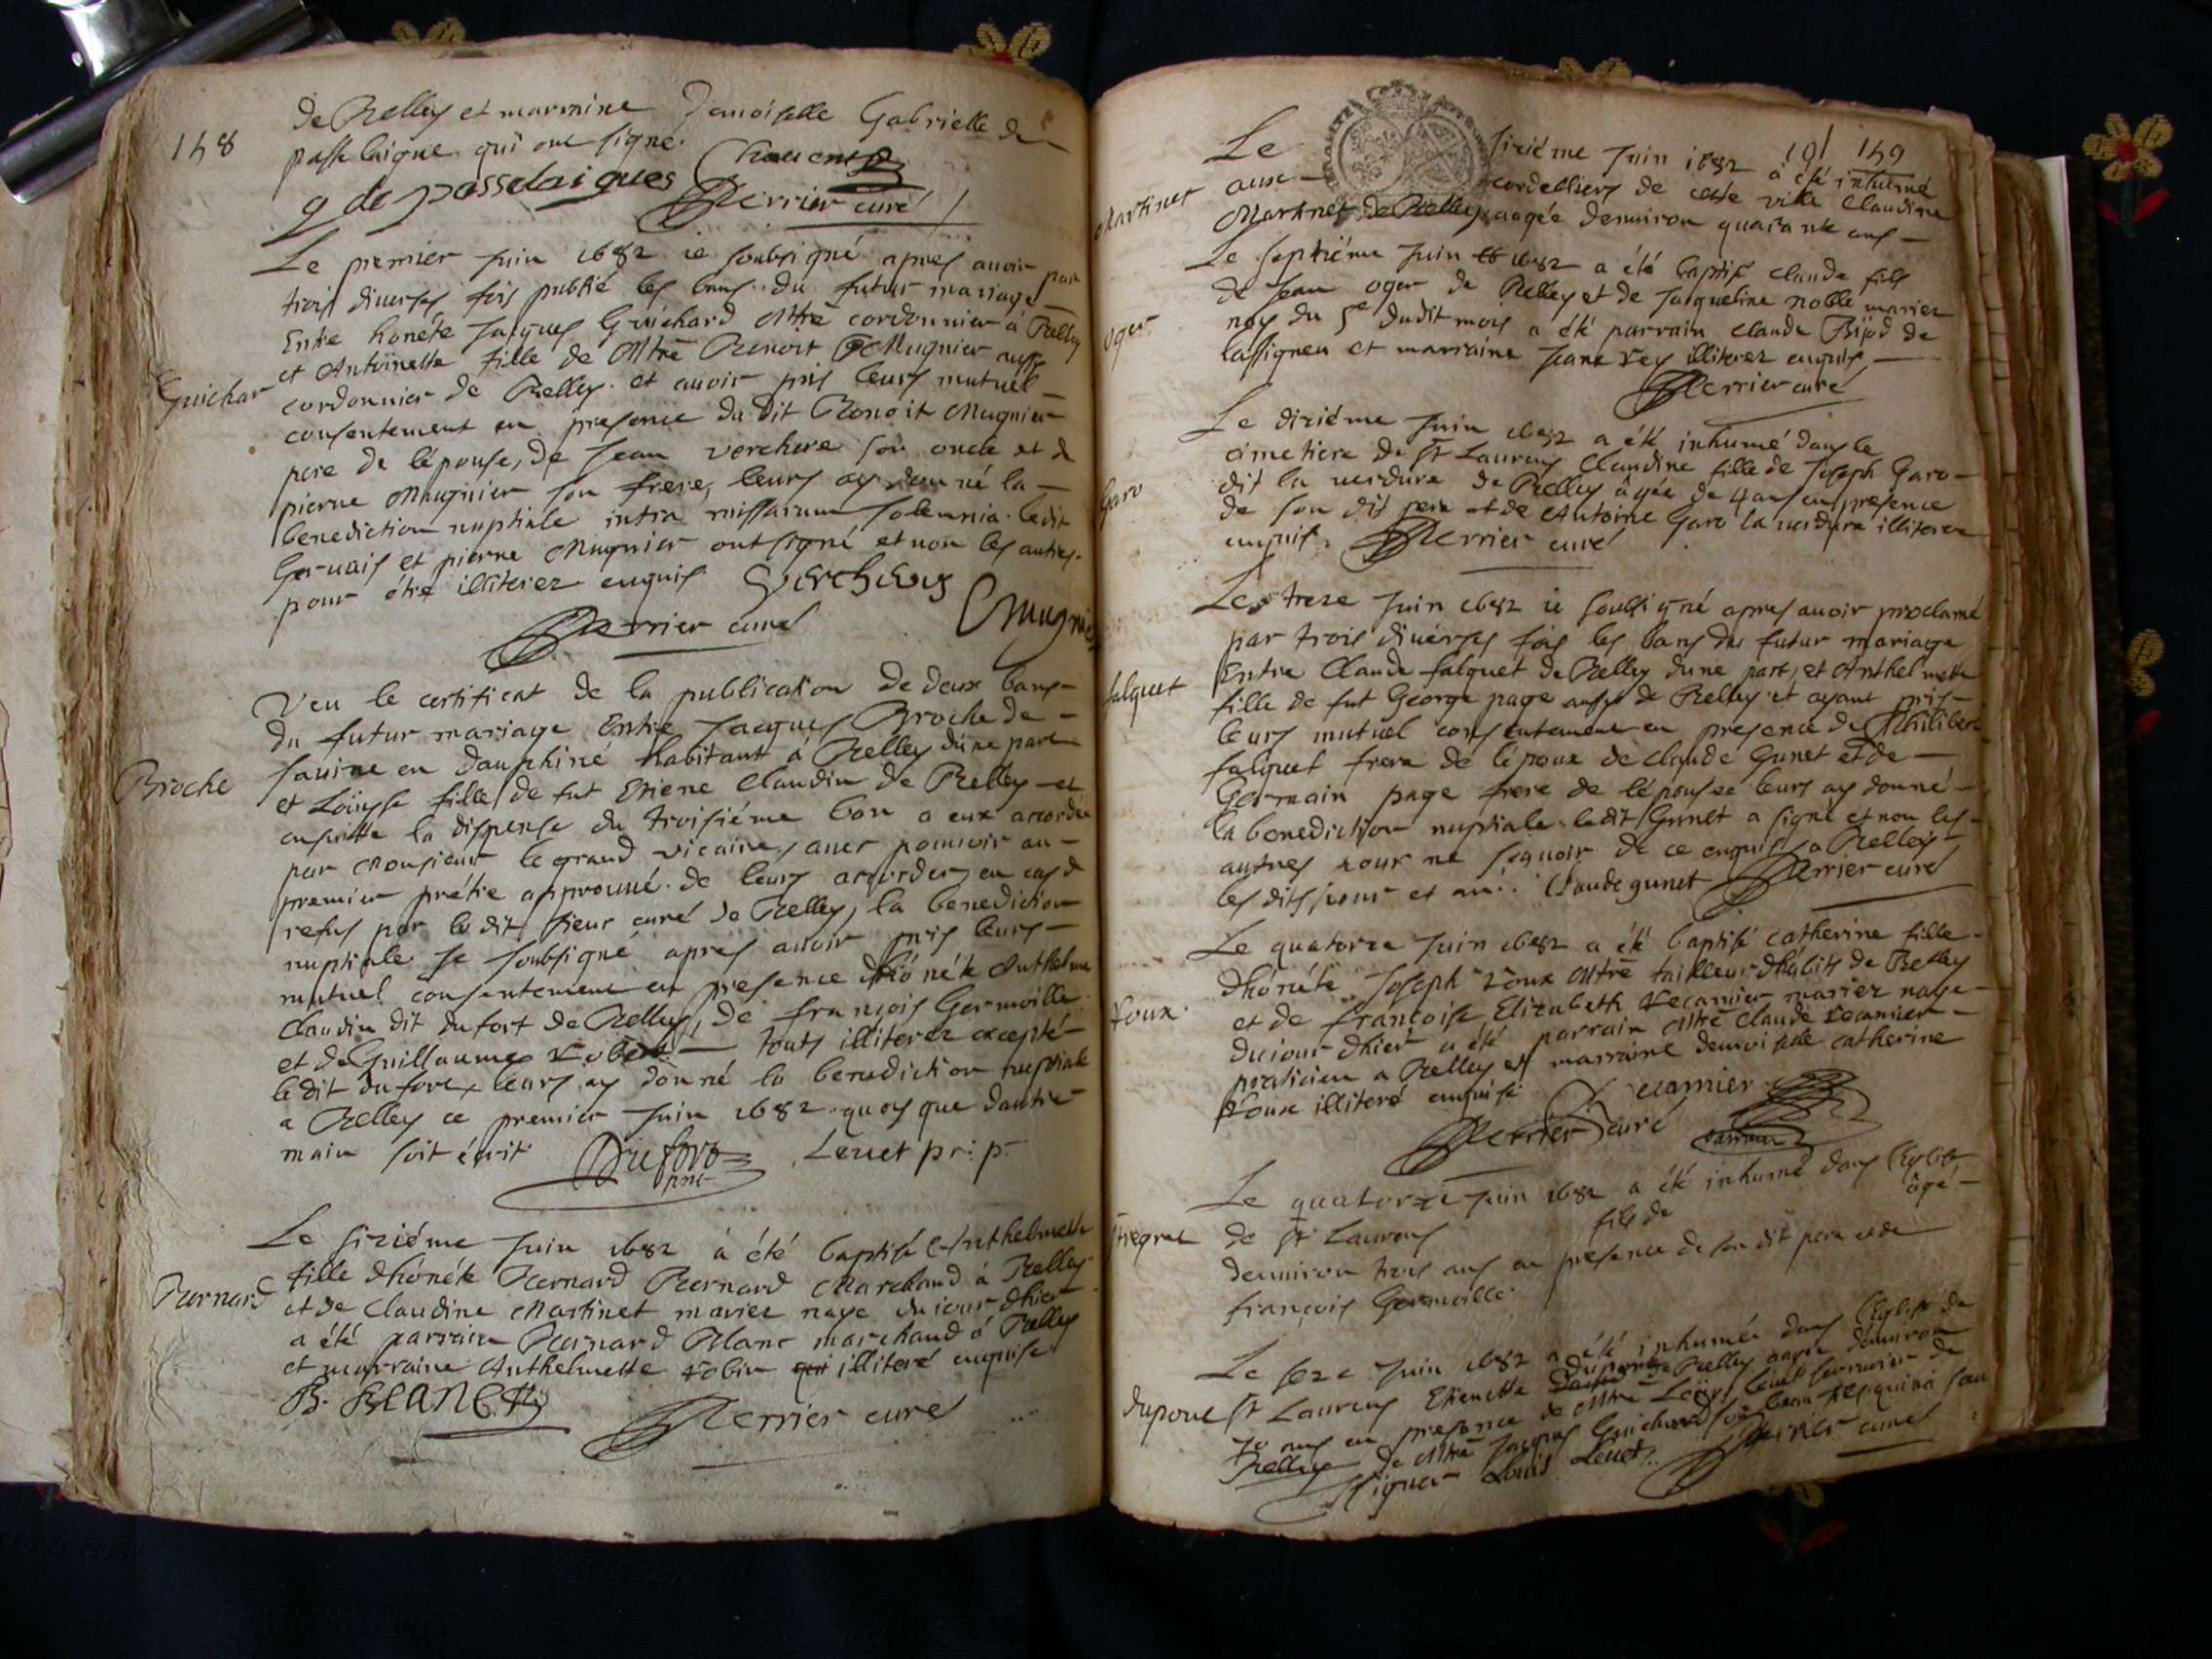 148
de Belley et marraine Demoiselle Gabrielle de
passelaigue qui ont signé.
g de passelaigues
Perrier curé
Le premier Juin 1682 ie soubsigné apres auoir par
trois diuerses fois publié les bans du futur mariage
Entre honéte Jacques Guichard Mtre cordonnier à Belley
et Antoinette fille de Mtre Benoit Mugnier aussy
Guichar
cordonnier de Belley. et auoir pris leurs mutuel
consentement en presence du dit Benoit Mugnier
pere de lépouse, de Jean verchere son oncle et de
pierre Mugnier son frere, leurs ay donné la
benediction nuptiale intra missarum solemnia. ledit
Geruais et pierre Mugnier ont signé et non les autres.
pour étre illiterez enquis
Mugnier
Perrier curé
Veu le certificat de la publication de deux bans
du futur mariage Entre Jacques Broche de
sauine en dauphiné habitant à Belley dune part
Broche
et Loüyse fille de fut Etiene Claudin de Belley et
ensuitte la dispense du troisiéme ban a eux accordée
par Monsieur le grand vicaire, auec pouuoir au
premier prétre approuué de leurs accorder, en cas de
refus par le dit sieur curé de Belley, la benediction
nuptiale Je soubsigné apres auoir pris leurs
mutuel consentement en presence dhónéte Anthelme
Claudin dit du fort de Belley, de françois Germoille
et de Guillaume Robert touts illiterez excepté
le dit du fort, leurs ay donné la benediction nuptiale
a Belley ce premier Juin 1682 quoy que dautre
main soit écrit Dufort Leuet pr: p:
Le siziéme Juin 1682 à été baptisé Anthelmette
fille dhónéte Bernard Bernard Marchand à Belley
Bernard
et de Claudine Martinet mariez naye du iour dhier
a été parrain Bernard Blanc marchand à Belley
et marraine Anthelmette Robin qui illiteré enquise
B. BLANC
Perrier curé
101 149
Le siziéme Juin 1682 à été inhumé
aux cordelliers de cette ville Claudine
Martinet
Martinet de Belley aagée denuiron quarante ans
Le septiéme Juin 1682 a été baptisé claude fils
de Jean oger de Belley et de Jacqueline noble mariez
oger
nay du 5e dudit mois a été parrain claude Bijod de
lassignieu et marraine Jeane Rey illiterez enquis,
Perrier curé
Le diziéme Juin 1682 a été inhumé dans le
cimetiere de St Laurens Claudine fille de Joseph Garo
Garo
dit la verdure de Belley âgée de 4 ans en presence
de son dit pere et de Antoine Garo la verdure illiterez
enquis. Perrier curé
Le treze Juin 1682 ie soubsigné apres auoir proclamé
par trois diuerses fois les bans du futur mariage
Entre Claude falquet de Belley dune part, et Anthelmette
falquet
fille de fut George page aussy de Belley et ayant pris
leurs mutuel consentement en presence de Philibert
falquet frere de lépoux de claude Gunet et de
Germain page frere de lépousee leurs ay donné
la benediction nuptiale. ledit Gunet a signé et non les
autres pour ne sçauoir de ce enquis a Belley
les dits jour et an. Claude gunet Perrier curé
Le quatorze Juin 1682 a été baptisé catherine fille
dhónéte Joseph Roux Mtre tailleur dhabits de Belley
Roux.
et de françoise Elizabeth Recamier mariez naye
du iour dhier a été parrain Mtre Claude Recamier
praticien a Belley et marraine demoiselle catherine
Roux illiteré enquise Recamier
parrain
Perrier curé
Le quatorze Juin 1682 a été inhumé dans lEglise
de St Laurens fils de âgé
denuiron trois ans en presence de son dit pere et de
françois Germoille.
Le seze Juin 1682 a été inhumée dans lEglise de
Dupont
St Laurens Etienette Dupont de Belley aagée denuiron
70 ans en presence de Mtre Loüys Leuet serrurier de
Belley de Mtre Jacques Guichard son beau
signer Louis Leuet. Perrier curé